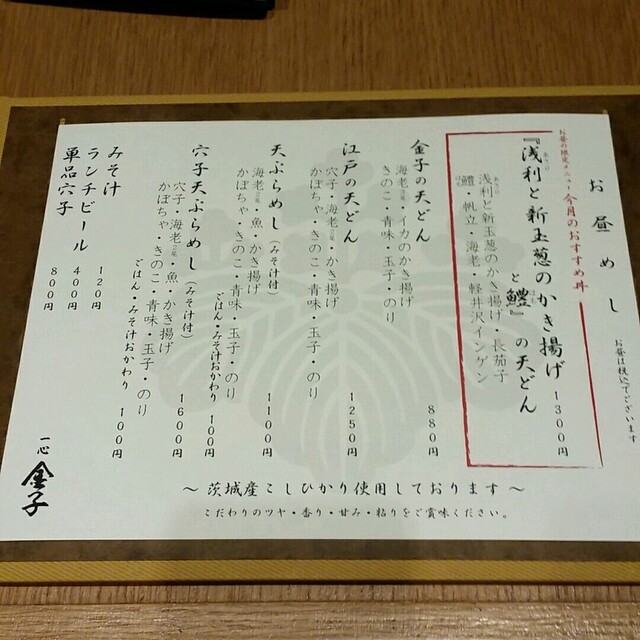 お昼めし
お昼は税込でございます
お昼の限定メニュー 今月のおすすめ丼
『浅利と新玉葱のかき揚げ
と鱧』の天どん
1300円
浅利と新玉葱のかき揚げ・長茄子
鱧・帆立・海老・軽井沢インゲン
金子の天どん
880円
海老2尾・イカのかき揚げ
きのこ・青味・玉子・のり
江戸の天どん
1250円
穴子・海老2尾・かき揚げ
かぼちゃ・きのこ・青味・玉子・のり
天ぷらめし(みそ汁付)
1100円
海老2尾・魚・かき揚げ
かぼちゃ・きのこ・青味・玉子・のり
ごはん・みそ汁おかわり 100円
穴子天ぷらめし(みそ汁付)
1600円
穴子・海老2尾・魚・かき揚げ
かぼちゃ・きのこ・青味・玉子・のり
ごはん・みそ汁おかわり 100円
みそ汁 120円
ランチビール 400円
単品穴子 800円
一心 金子
〜茨城産こしひかり使用しております〜
こだわりのツヤ・香り・甘み・粘りをご賞味ください。